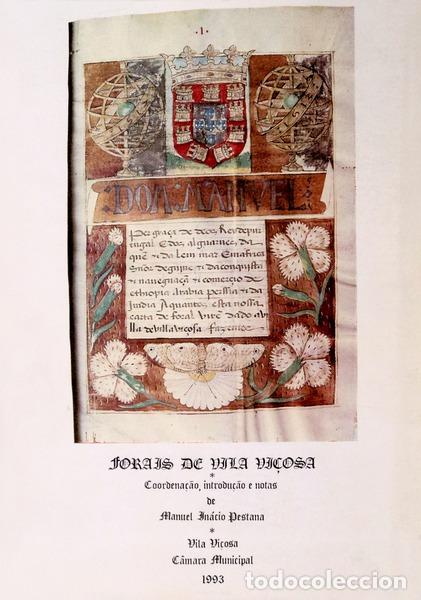 ·1·
:DOM:MANVEL:
Per graça de deos, Rey de por
tugal E dos alguarues, da
quẽ & da lem mar Em africa
Snõr de guine & da conquista
& naueguaçã & comercio de
ethiopia arabia perssia & da
Jndia Aquantos, esta nossa
carta de foral virẽ dado a vi
lla de villa viçosa fazemos
FORAIS DE VILA VIÇOSA
*
Coordenação, introdução e notas
de
Manuel Inácio Pestana
*
Vila Viçosa
Câmara Municipal
1993
todocoleccion.net